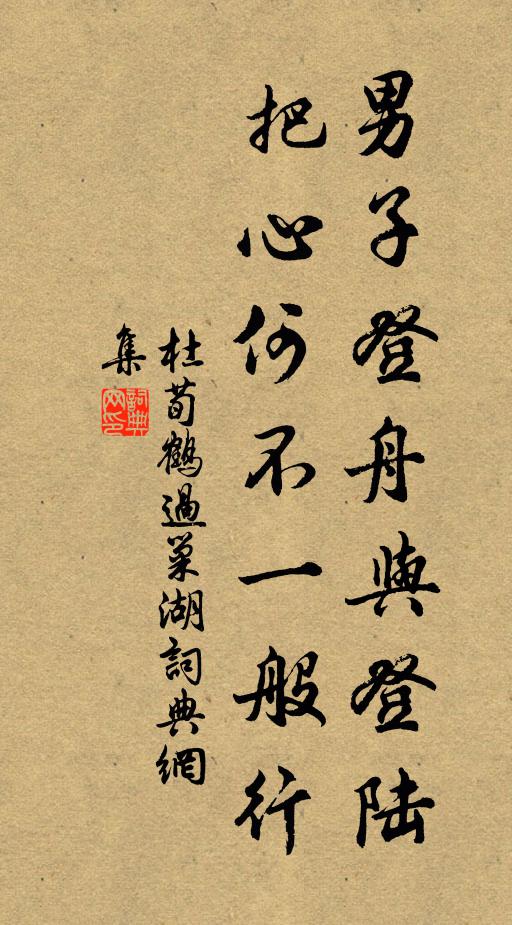 男子登舟與登陆
把心何不一般行
杜荀鶴過巢湖詞典網
集
詞典网印